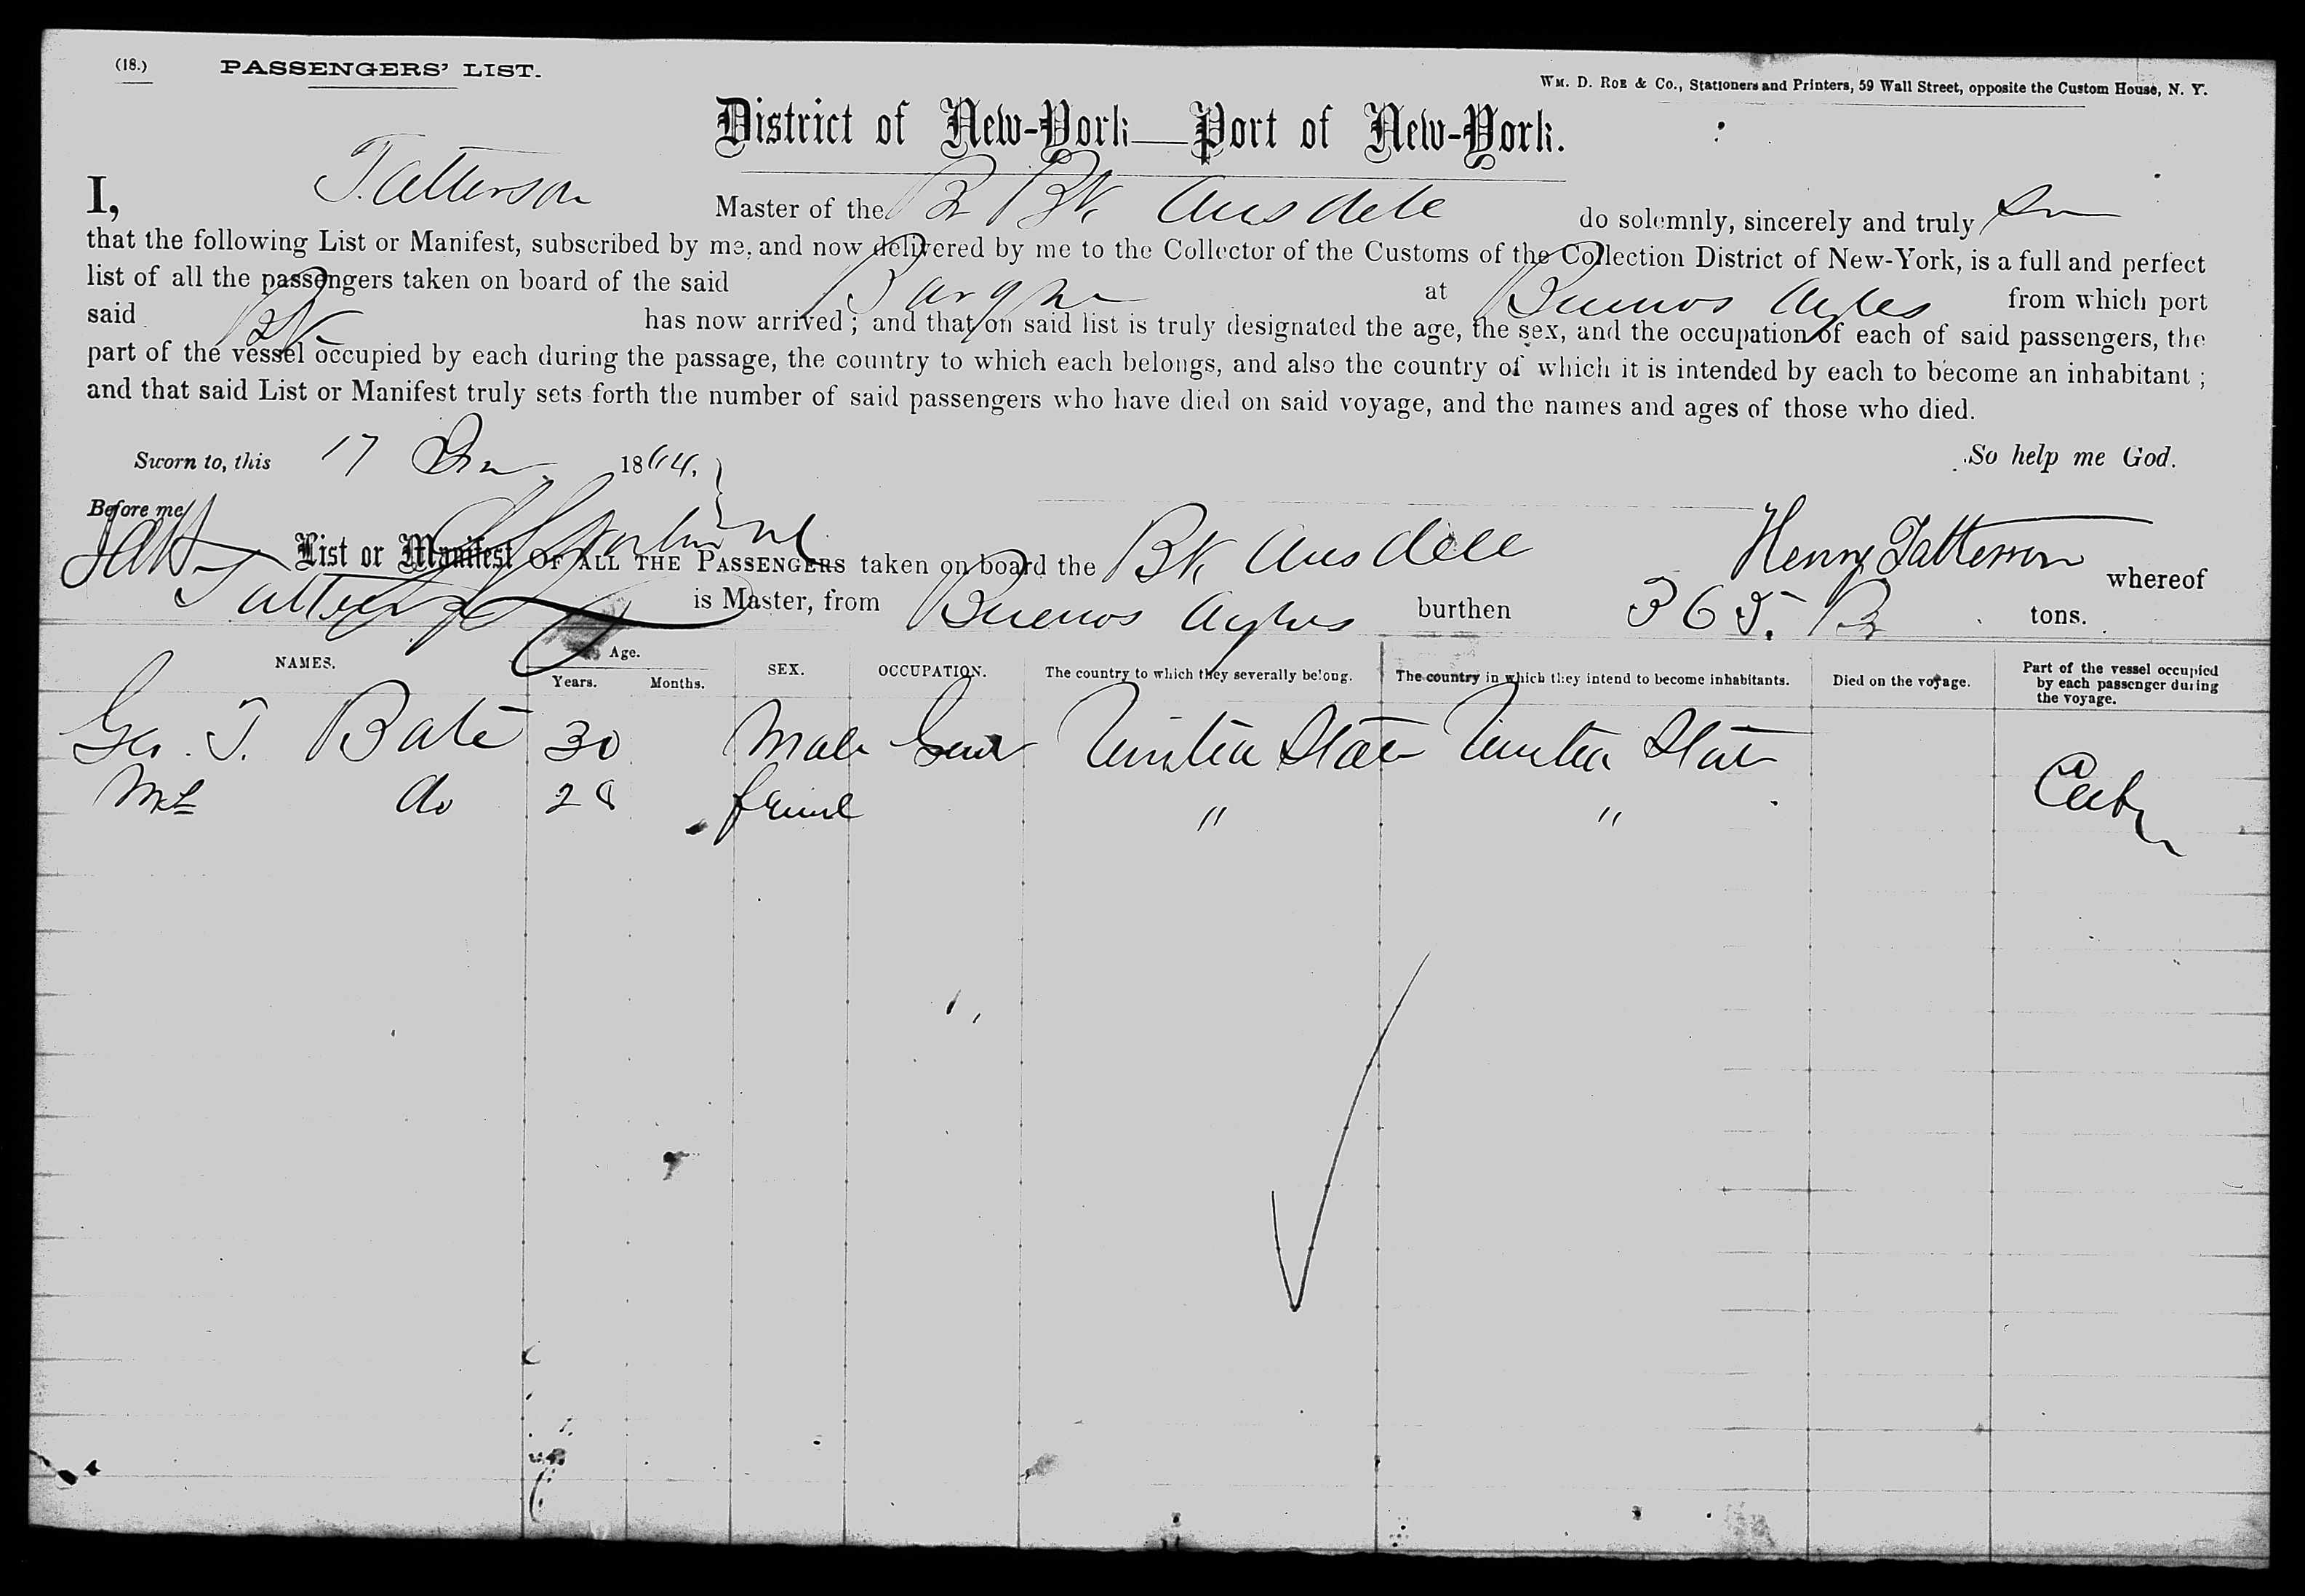 (18.) PASSENGERS' LIST.
WM. D. ROE & Co., Stationers and Printers, 59 Wall Street, opposite the Custom House, N. Y.
District of New-York—Port of New-York.
I, Tatterson Master of the Br Bk Ausdell do solemnly, sincerely and truly
that the following List or Manifest, subscribed by me, and now delivered by me to the Collector of the Customs of the Collection District of New-York, is a full and perfect
list of all the passengers taken on board of the said Barque at Buenos Ayres from which port
said Bk has now arrived; and that on said list is truly designated the age, the sex, and the occupation of each of said passengers, the
part of the vessel occupied by each during the passage, the country to which each belongs, and also the country of which it is intended by each to become an inhabitant;
and that said List or Manifest truly sets forth the number of said passengers who have died on said voyage, and the names and ages of those who died.
Sworn to, this 17 1864. So help me God.
Before me
List or Manifest OF ALL THE PASSENGERS taken on board the Bk Ausdell Henry Tatterson whereof
is Master, from Buenos Ayres burthen 365. Br tons.
NAMES. Age. Years. Months. SEX. OCCUPATION. The country to which they severally belong. The country in which they intend to become inhabitants. Died on the voyage. Part of the vessel occupied by each passenger during the voyage.
Geo. T. Bate 30 Male United States United States
Mrs do 28 " " Cabin